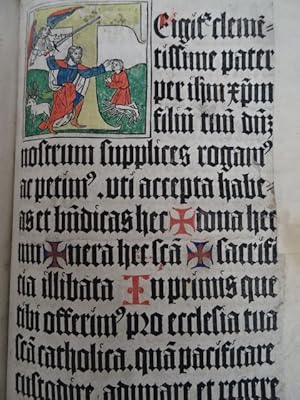 T Eigit᷑ clemē-
tissime pater
per ihm̄ xp̄m
filiū tuū dn̄z
nostrum supplices rogamꝰ
ac petimꝰ. vti accepta habe-
as et bn̄dicas hec ✠ dona hec
mu ✠ nera hec scā ✠ sacrifi
tia illibata In primis que
tibi offerimꝰ pro ecclesia tua
scā catholica. quā pacificare
custodire. adunare et regere